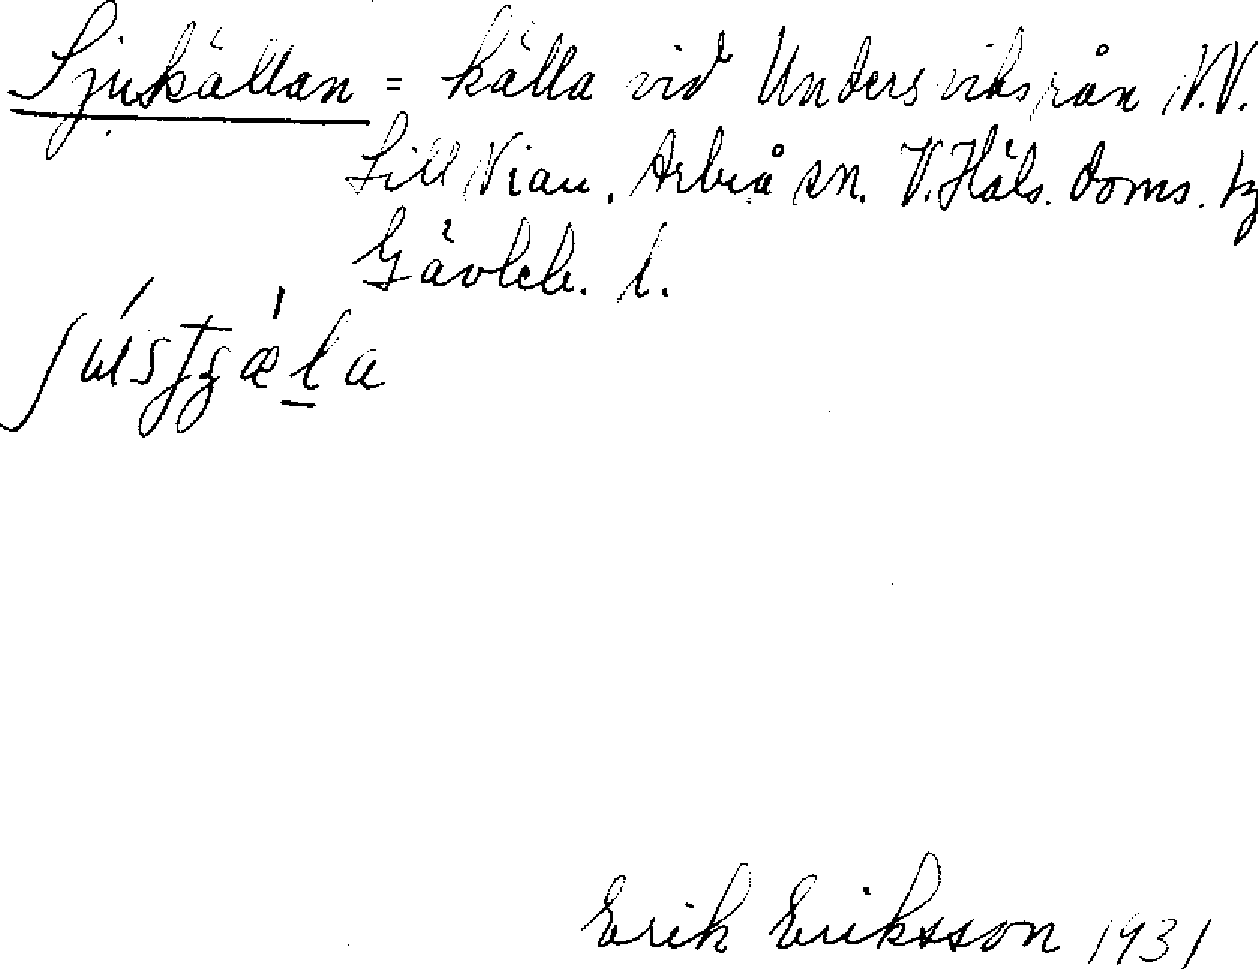 Sjukällan = källa vid Undersviksrån N.V.
till Vian. Arbrå sn. V. Häls. doms.
Gävleb. l.
Erik Eriksson 1931